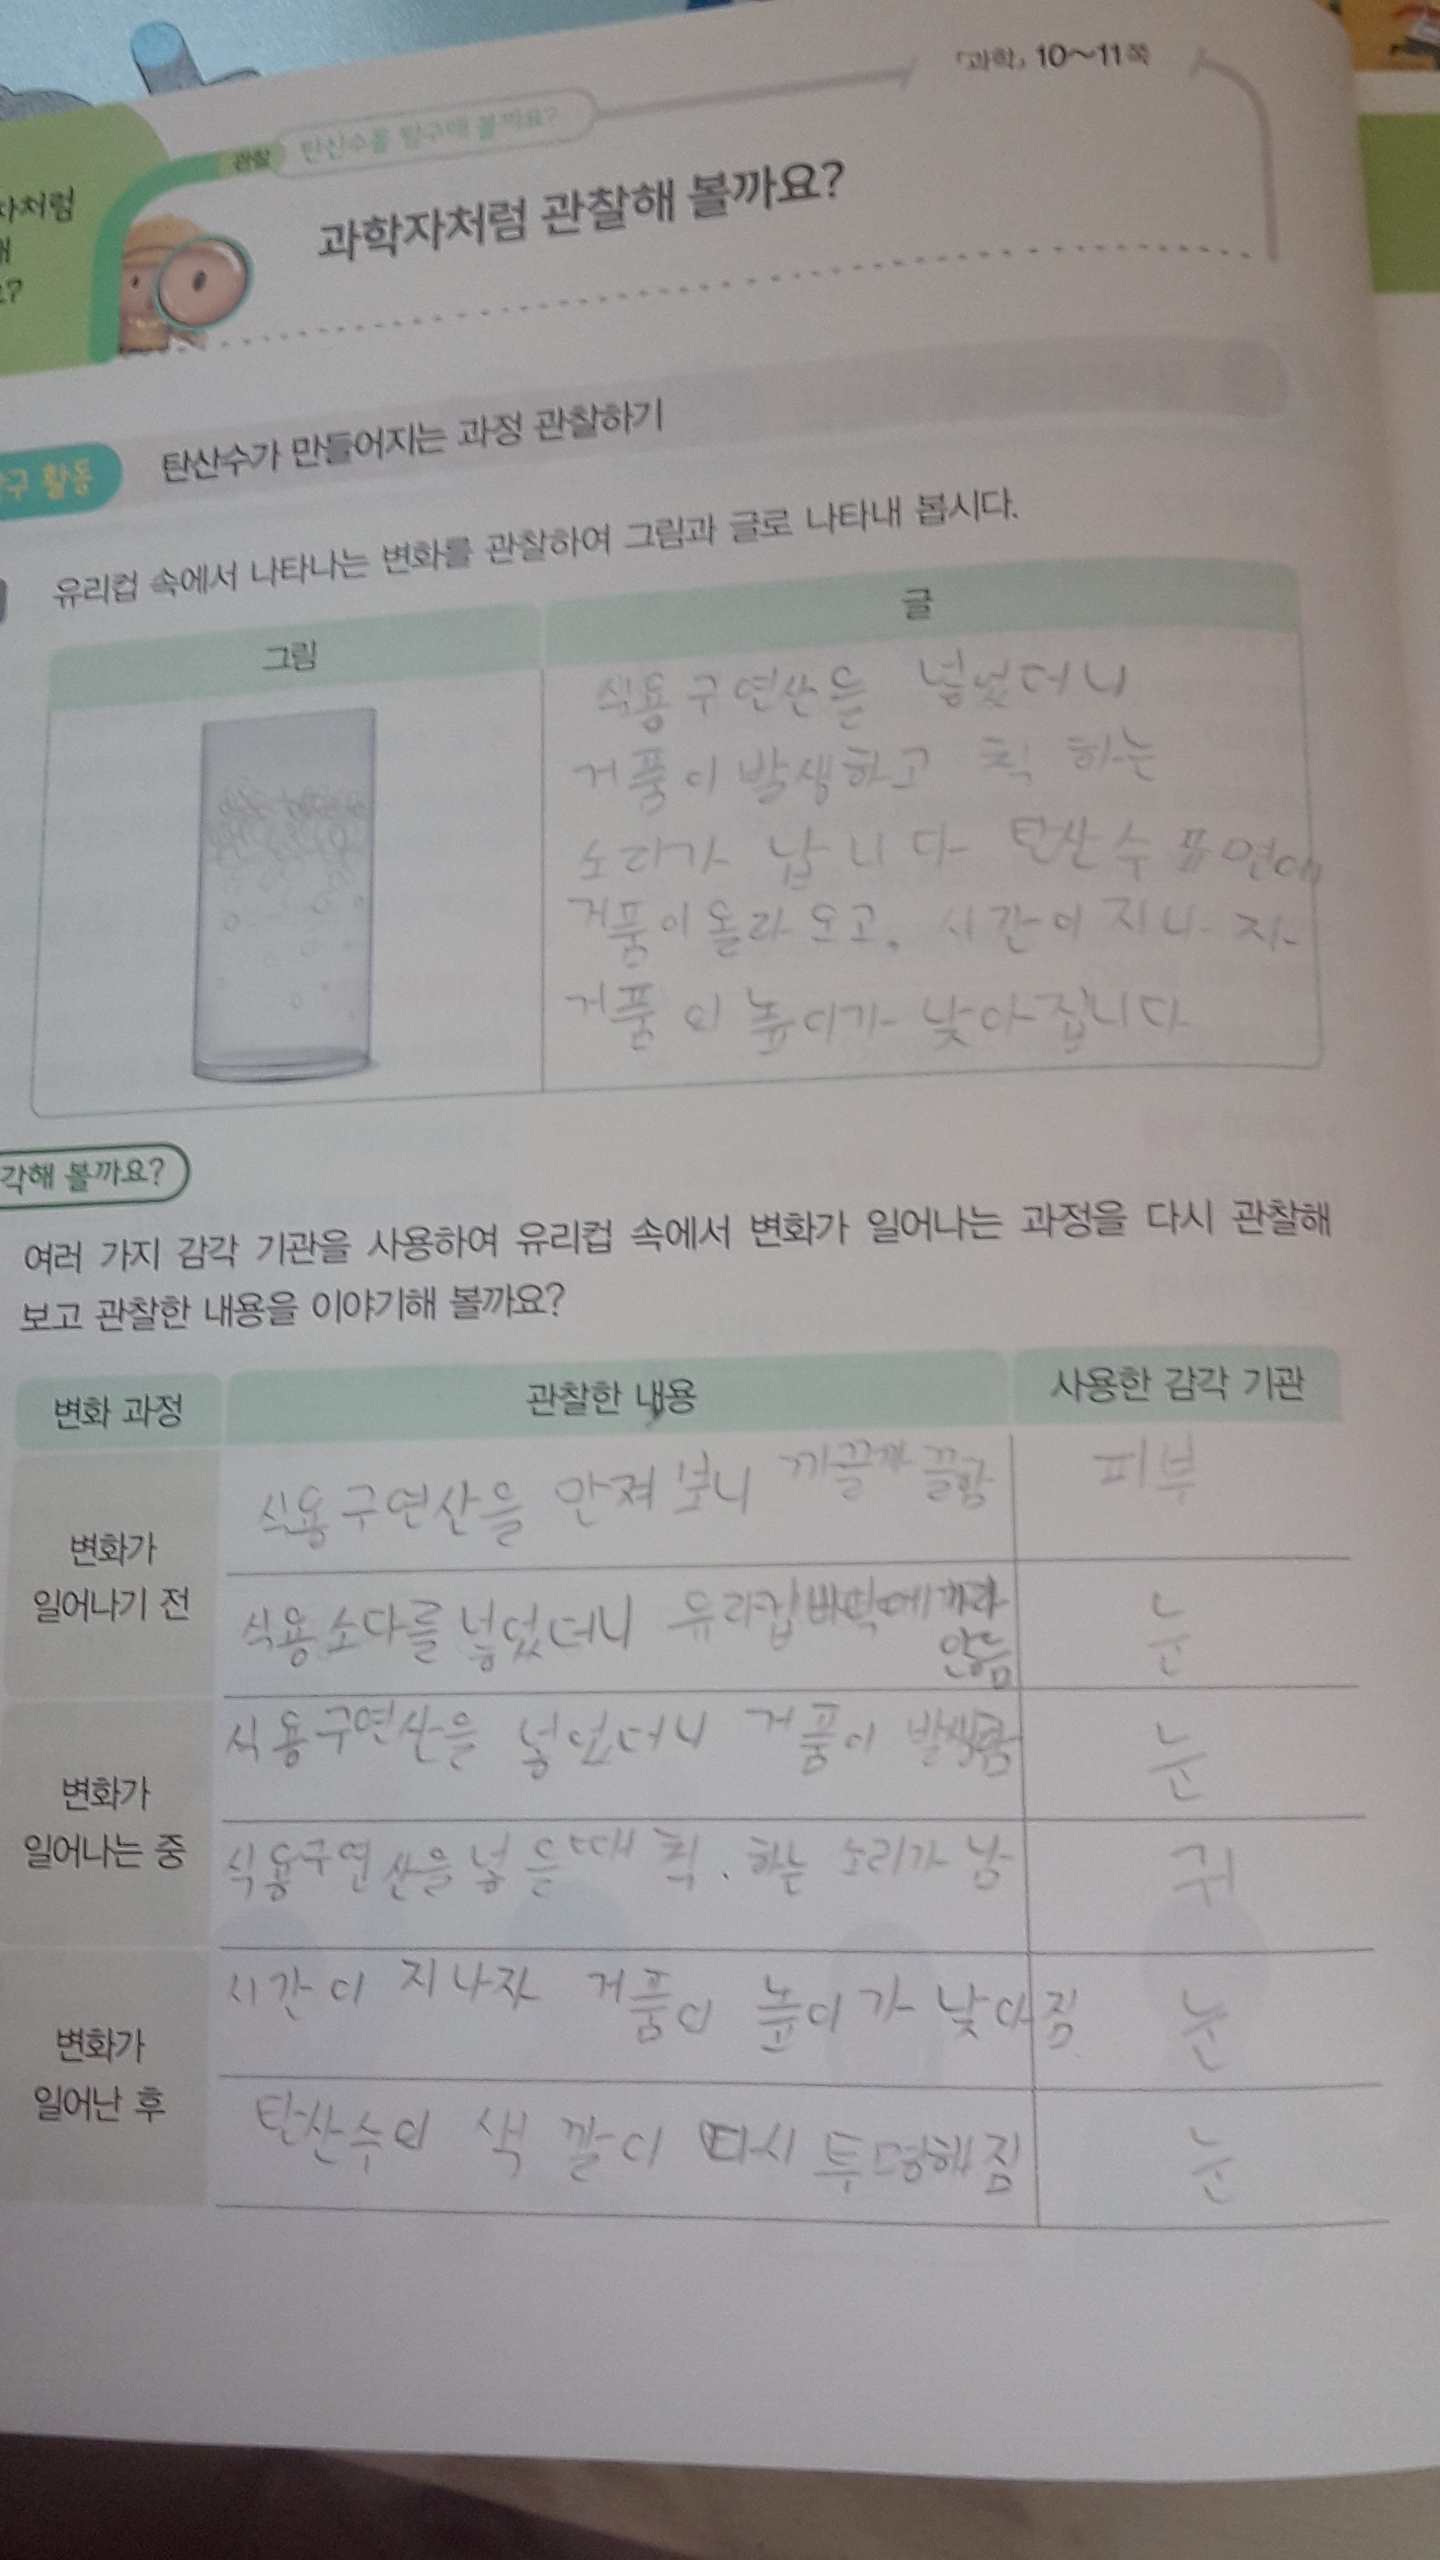 「과학」 10~11쪽
자처럼
관찰 탄산수를 탐구해 볼까요?
과학자처럼 관찰해 볼까요?
구 활동 탄산수가 만들어지는 과정 관찰하기
유리컵 속에서 나타나는 변화를 관찰하여 그림과 글로 나타내 봅시다.
그림
글
식용구연산을 넣었더니
거품이 발생하고 칙 하는
소리가 납니다 탄산수 표면에
거품이 올라오고, 시간이 지나자
거품의 높이가 낮아집니다
각해 볼까요?
여러 가지 감각 기관을 사용하여 유리컵 속에서 변화가 일어나는 과정을 다시 관찰해
보고 관찰한 내용을 이야기해 볼까요?
변화 과정 관찰한 내용 사용한 감각 기관
변화가
일어나기 전
식용구연산을 만져보니 까끌까끌함 피부
식용소다를 넣었더니 유리컵바닥에 가라
앉음 눈
변화가
일어나는 중
식용구연산을 넣었더니 거품이 발생함 눈
식용구연산을 넣을때 칙. 하는 소리가 남 귀
변화가
일어난 후
시간이 지나자 거품의 높이가 낮아짐 눈
탄산수의 색깔이 다시 투명해짐 눈